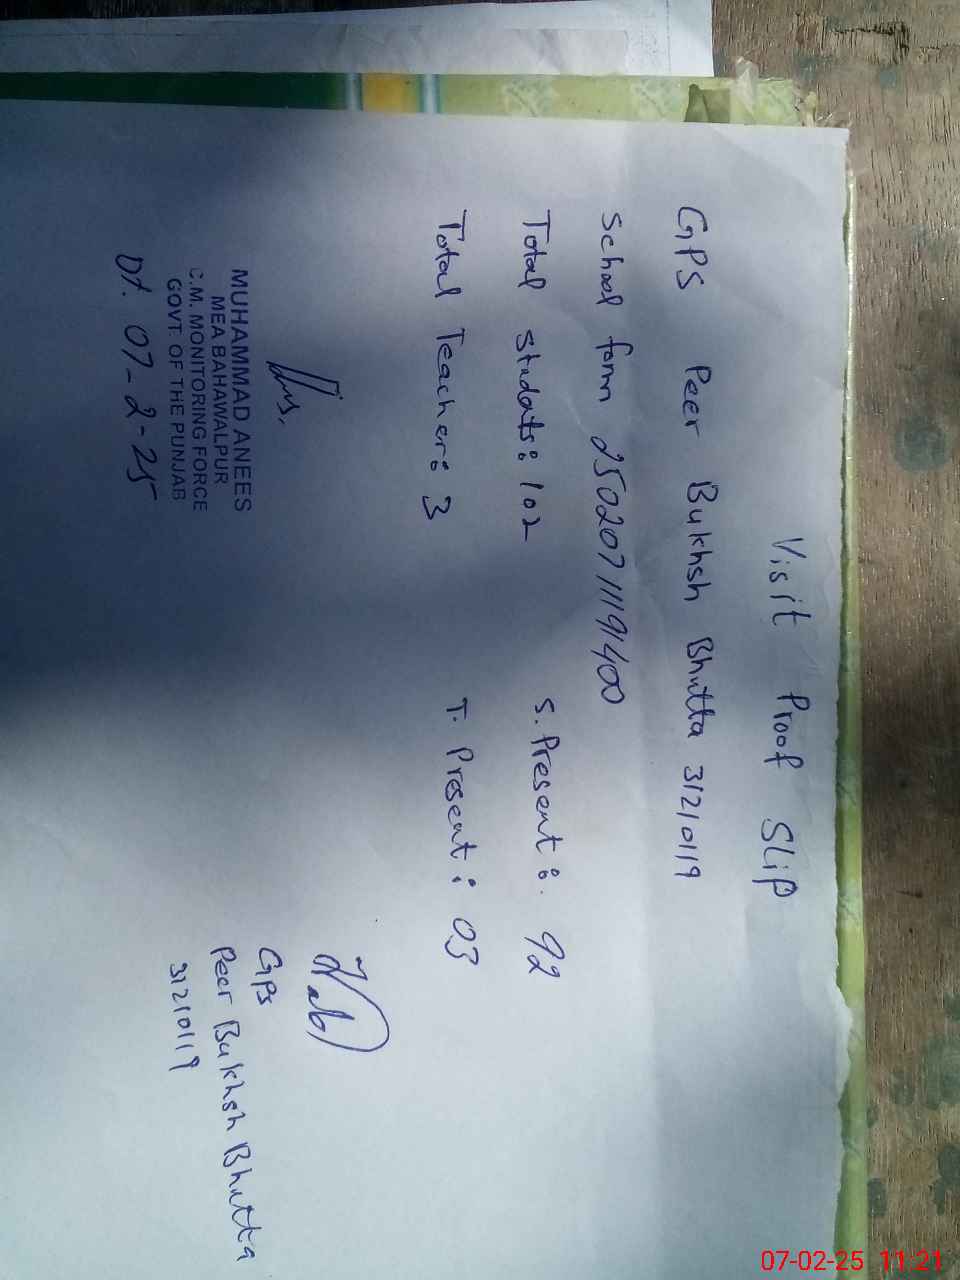 Visit Proof Slip
GPS Peer Bukhsh Bhutta 31210119
School form 25020711191400
Total Students: 102 S. Present: 92
Total Teacher: 3 T. Present: 03
MUHAMMAD ANEES
MEA BAHAWALPUR
C.M. MONITORING FORCE
GOVT. OF THE PUNJAB
Dt. 07-2-25
GPS
Peer Bukhsh Bhutta
31210119
07-02-25 11:21